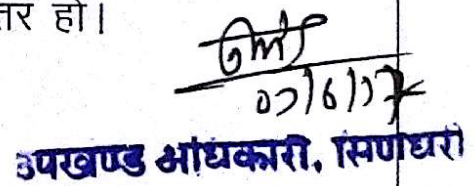 तर हो।
07/6/17
उपखण्ड अधिकारी, सिणधरी